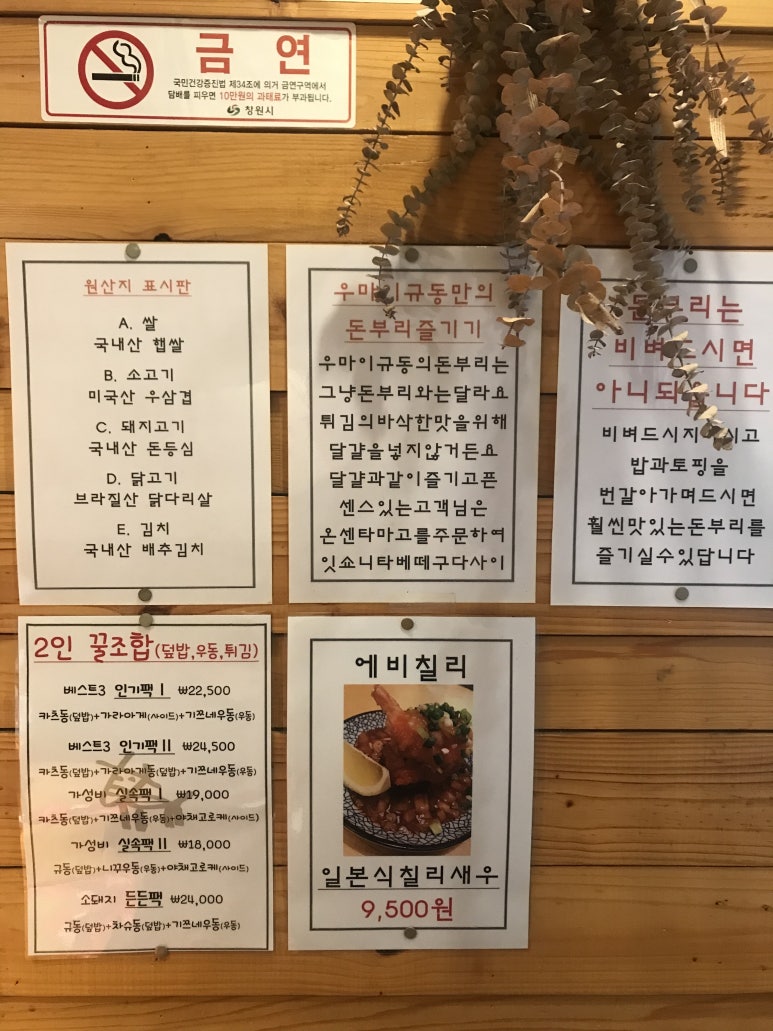 금연
국민건강증진법 제34조에 의거 금연구역에서
담배를 피우면 10만원의 과태료가 부과됩니다.
창원시
원산지 표시판
A. 쌀
국내산 햅쌀
B. 소고기
미국산 우삼겹
C. 돼지고기
국내산 돈등심
D. 닭고기
브라질산 닭다리살
E. 김치
국내산 배추김치
우마이규동만의
돈부리즐기기
우마이규동의돈부리는
그냥돈부리와는달라요
튀김의바삭한맛을위해
달걀을넣지않거든요
달걀과같이즐기고픈
센스있는고객님은
온센타마고를주문하여
잇쇼니타베떼구다사이
돈부리는
비벼드시면
아니되옵니다
비벼드시지 시고
밥과토핑을
번갈아가며드시면
훨씬맛있는돈부리를
즐기실수있답니다
2인 꿀조합(덮밥,우동,튀김)
베스트3 인기팩Ⅰ ₩22,500
카츠동(덮밥)+가라아게(사이드)+기쯔네우동(우동)
베스트3 인기팩Ⅱ ₩24,500
카츠동(덮밥)+가라아게동(덮밥)+기쯔네우동(우동)
가성비 실속팩Ⅰ ₩19,000
카츠동(덮밥)+기쯔네우동(우동)+야채고로케(사이드)
가성비 실속팩Ⅱ ₩18,000
규동(덮밥)+니꾸우동(우동)+야채고로케(사이드)
소돼지 든든팩 ₩24,000
규동(덮밥)+차슈동(덮밥)+기쯔네우동(우동)
에비칠리
일본식칠리새우
9,500원